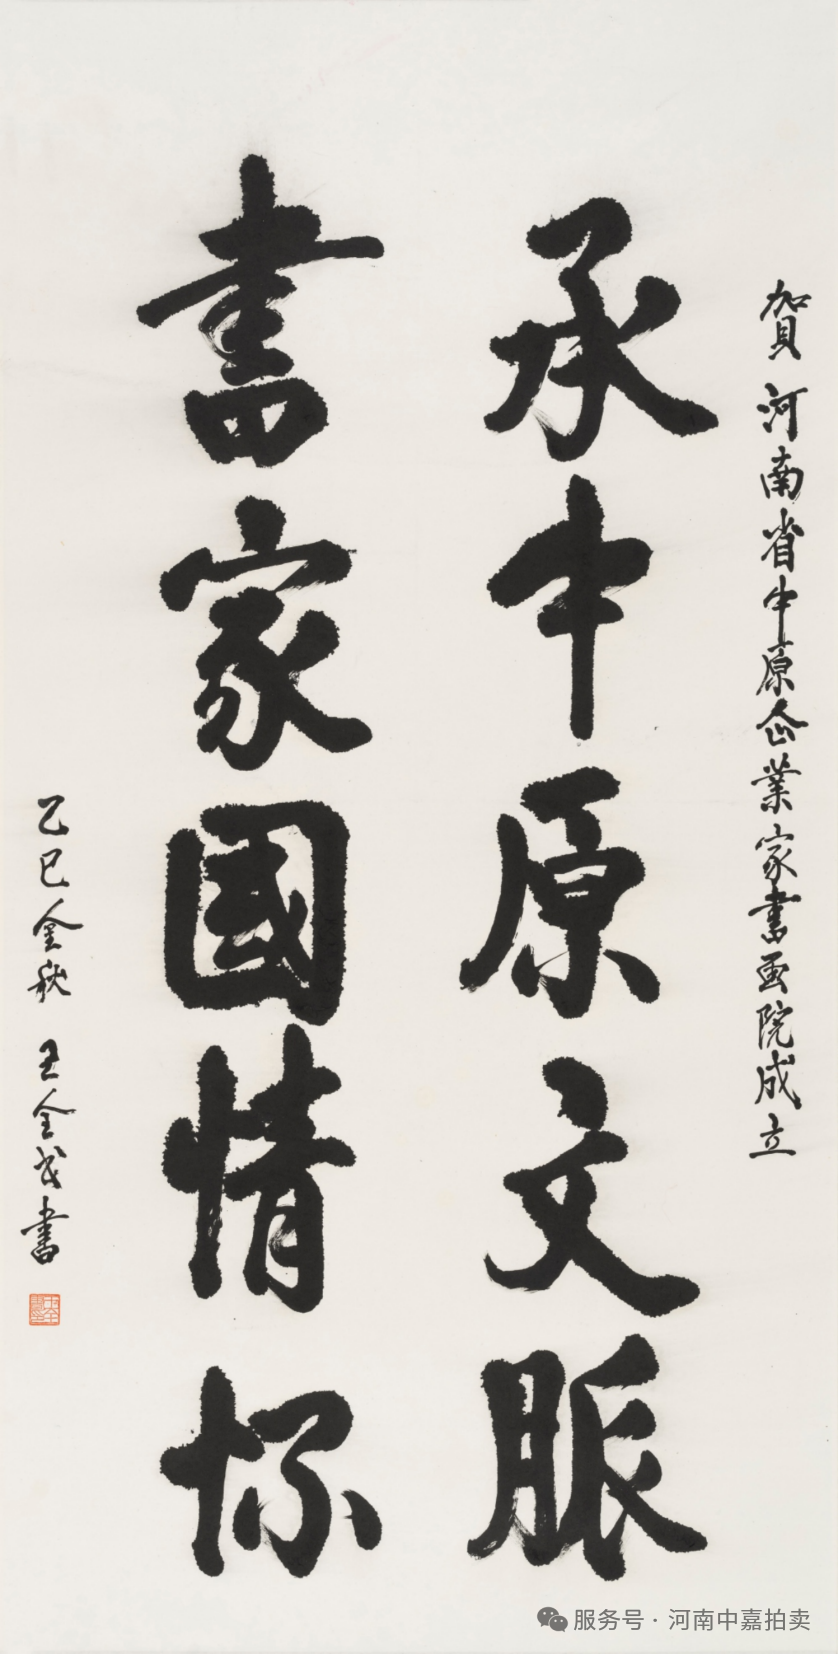 賀河南省中原企業家書画院成立
承中原文脈
書家國情怀
乙巳金秋 王全书書
服务号·河南中嘉拍卖